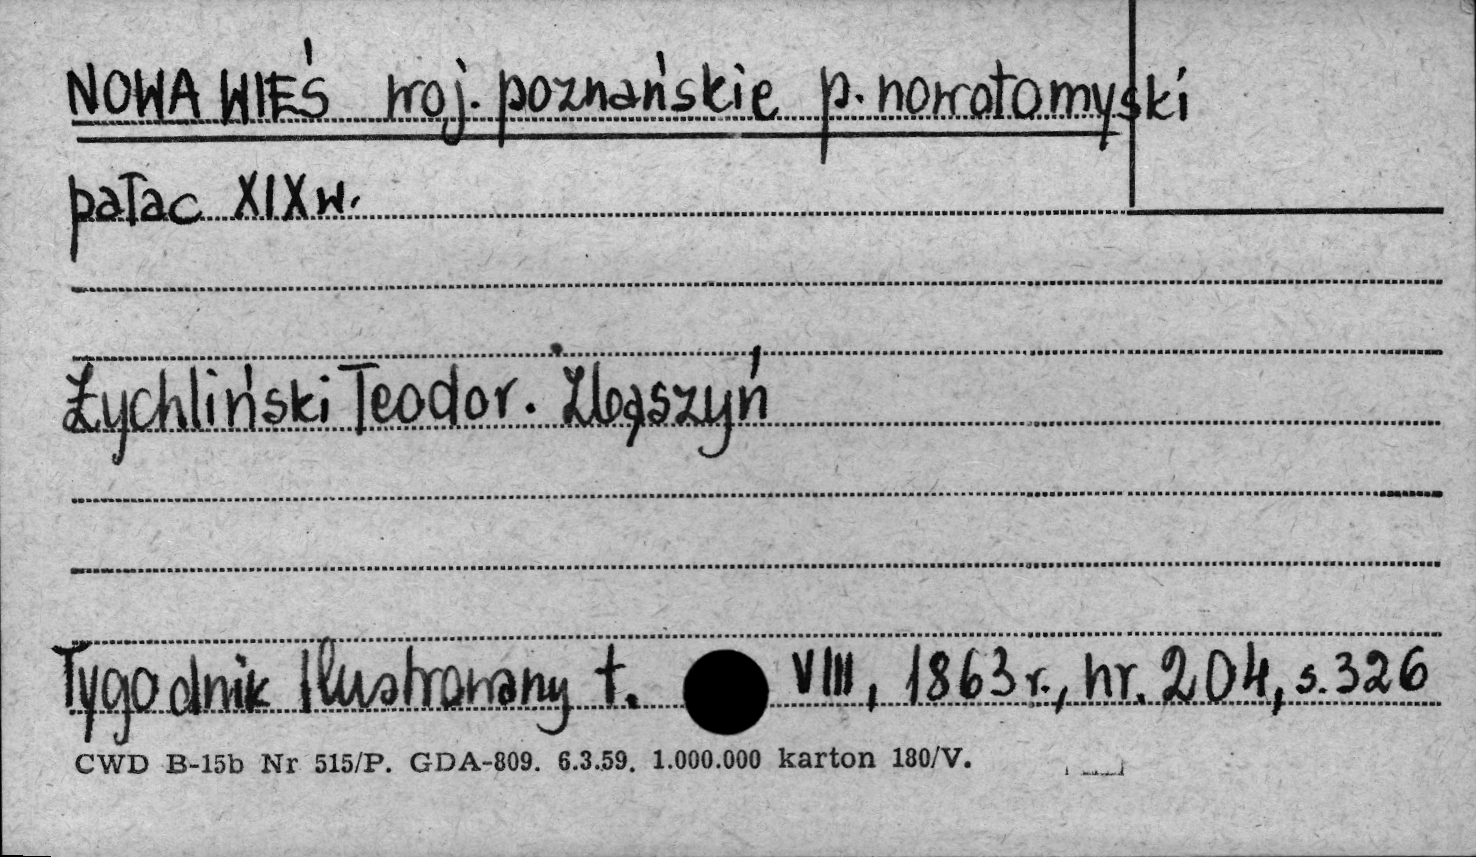 NOWA WIEŚ woj. poznańskie p. nowotomyski
pałac XIX w.
Żychliński Teodor. Zbąszyń
Tygodnik Ilustrowany t. VIII, 1863 r., nr. 204, s. 326
CWD B-15b Nr 515/P. GDA-809. 6.3.59. 1.000.000 karton 180/V.